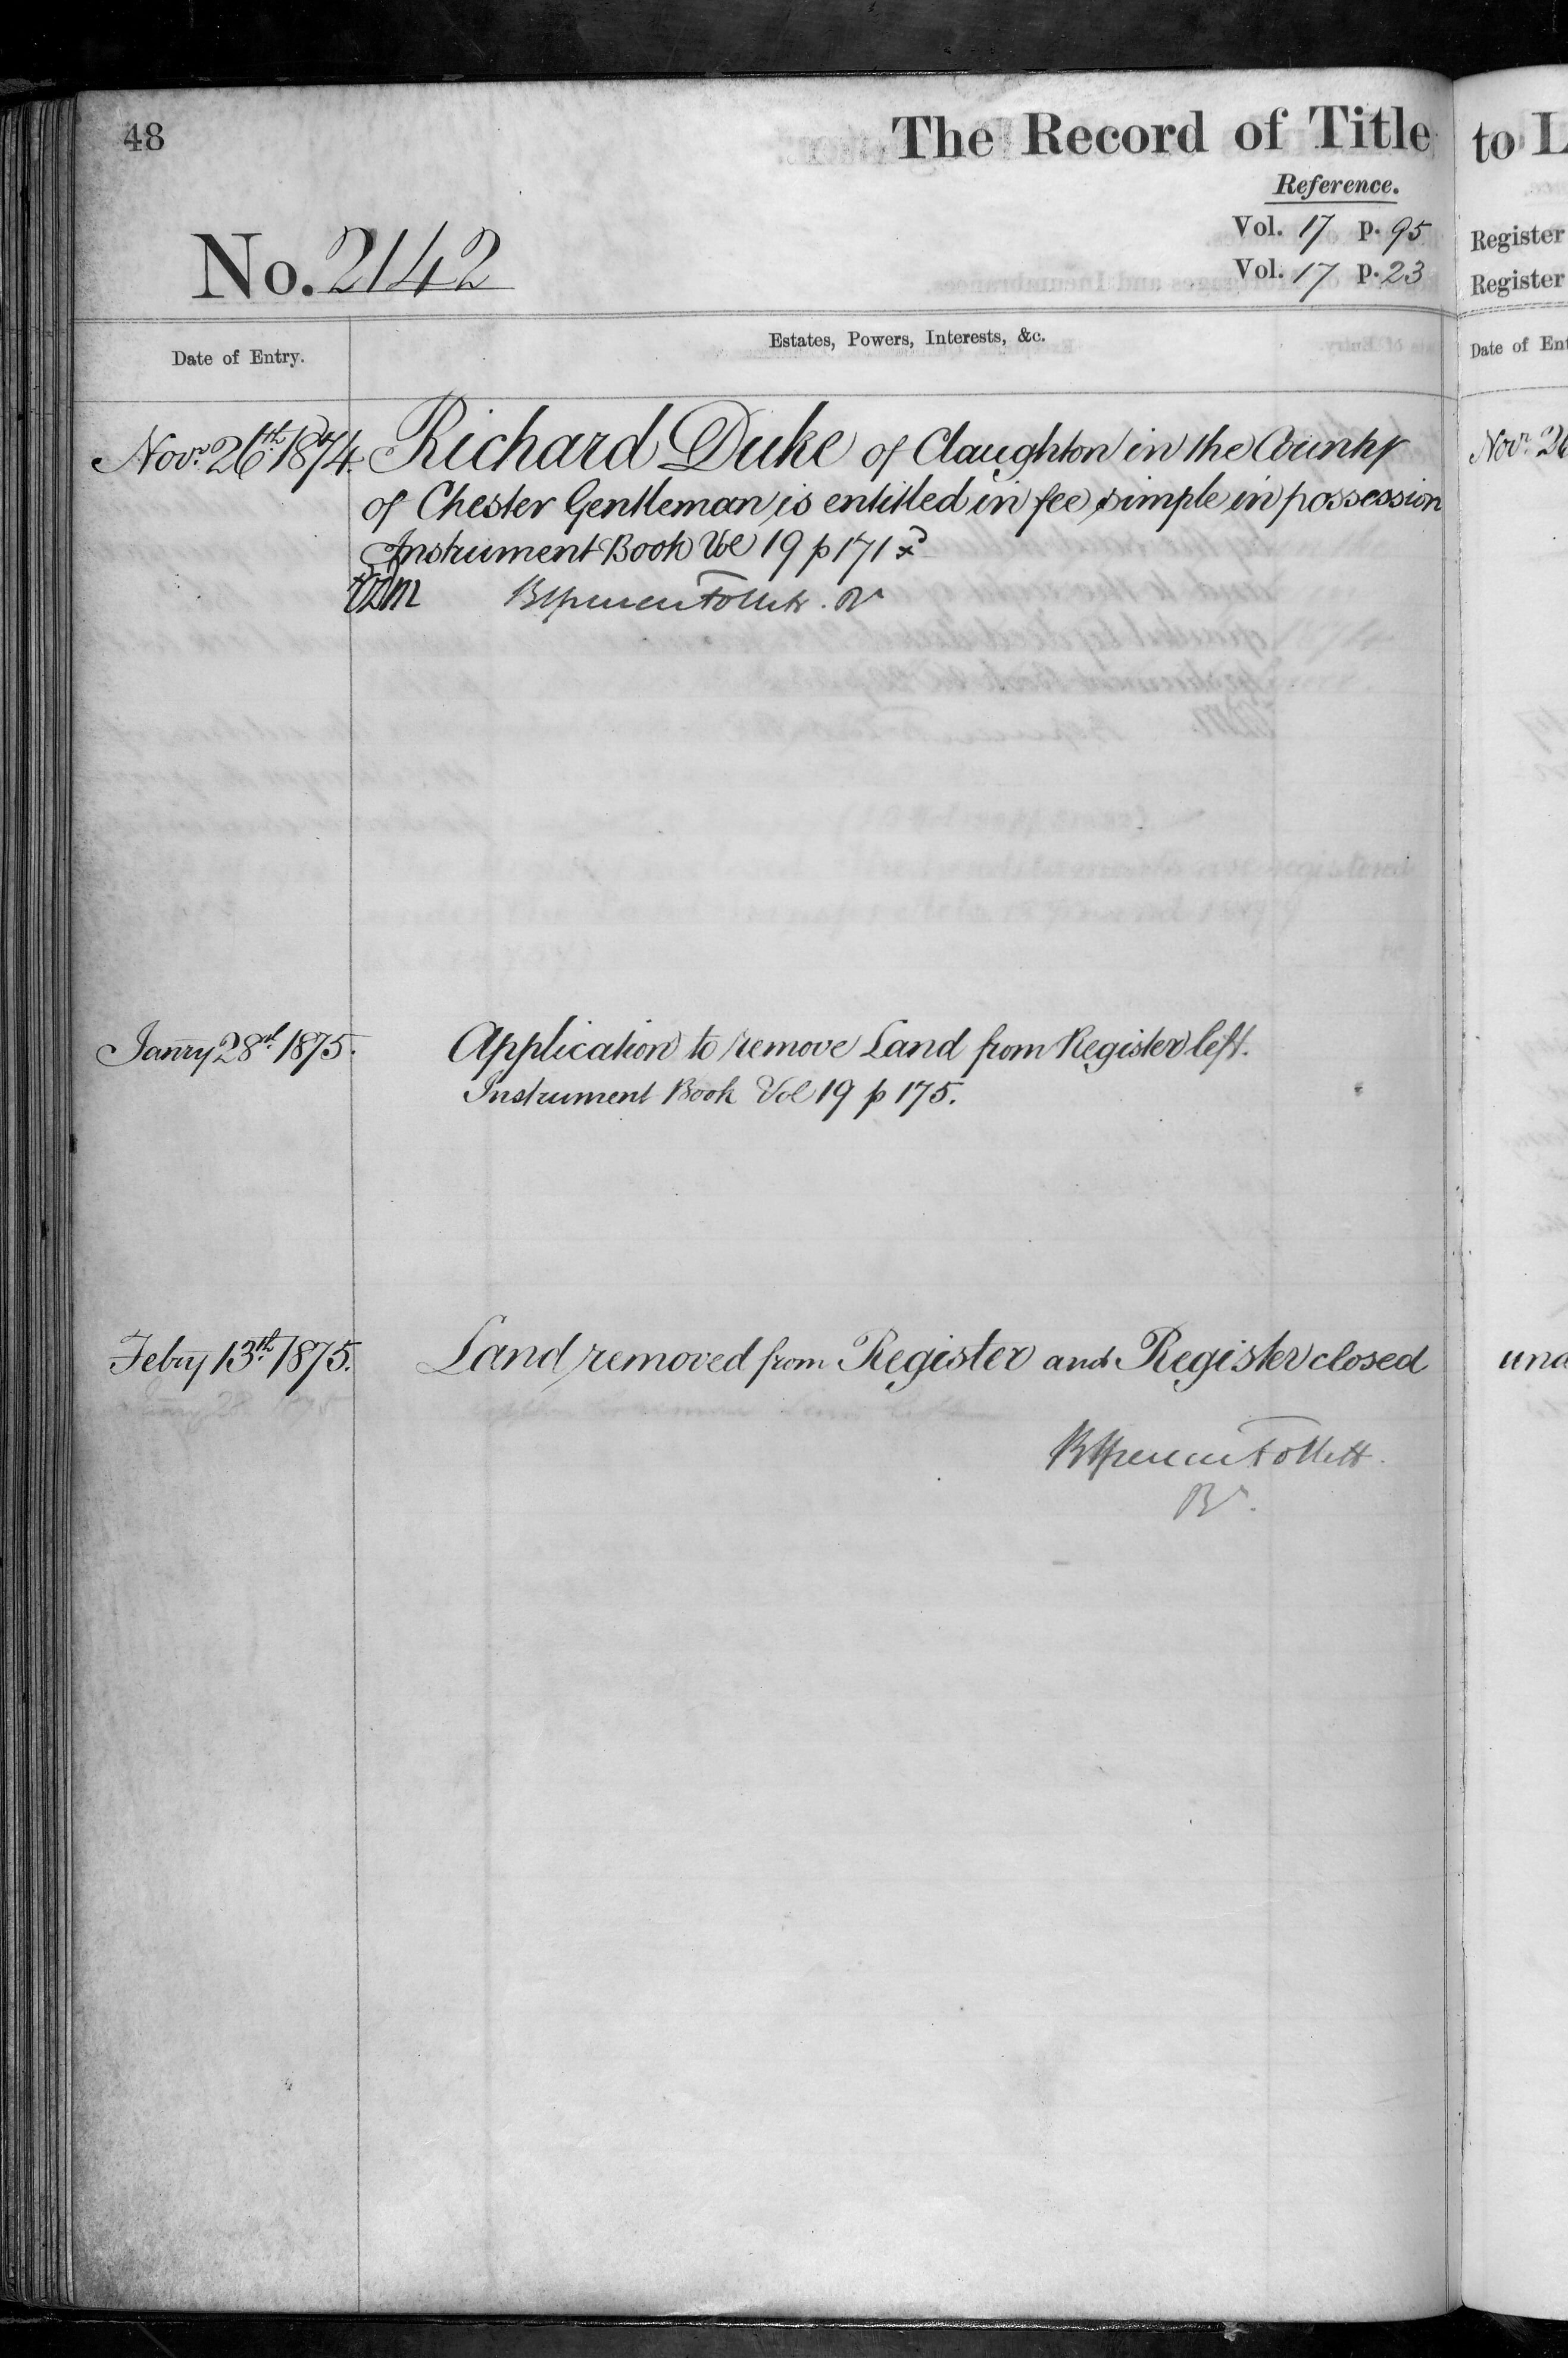 48
The Record of Title
Reference.
Vol. 17 p. 95
Vol. 17 p. 23
No. 2142
Date of Entry.
Estates, Powers, Interests, &c.
Novr. 26th. 1874. Richard Duke of Claughton in the County
of Chester Gentleman is entitled in fee simple in possession
Instrument Book Vol 19 p 171
BSpencer Follett. Rr
Janry 28th 1875. Application to remove Land from Register left.
Instrument Book Vol 19 p 175.
Febry 13th. 1875. Land removed from Register and Register closed
BSpencer Follett.
Rr.
to L
Register
Register
Date of Ent
Novr. 26